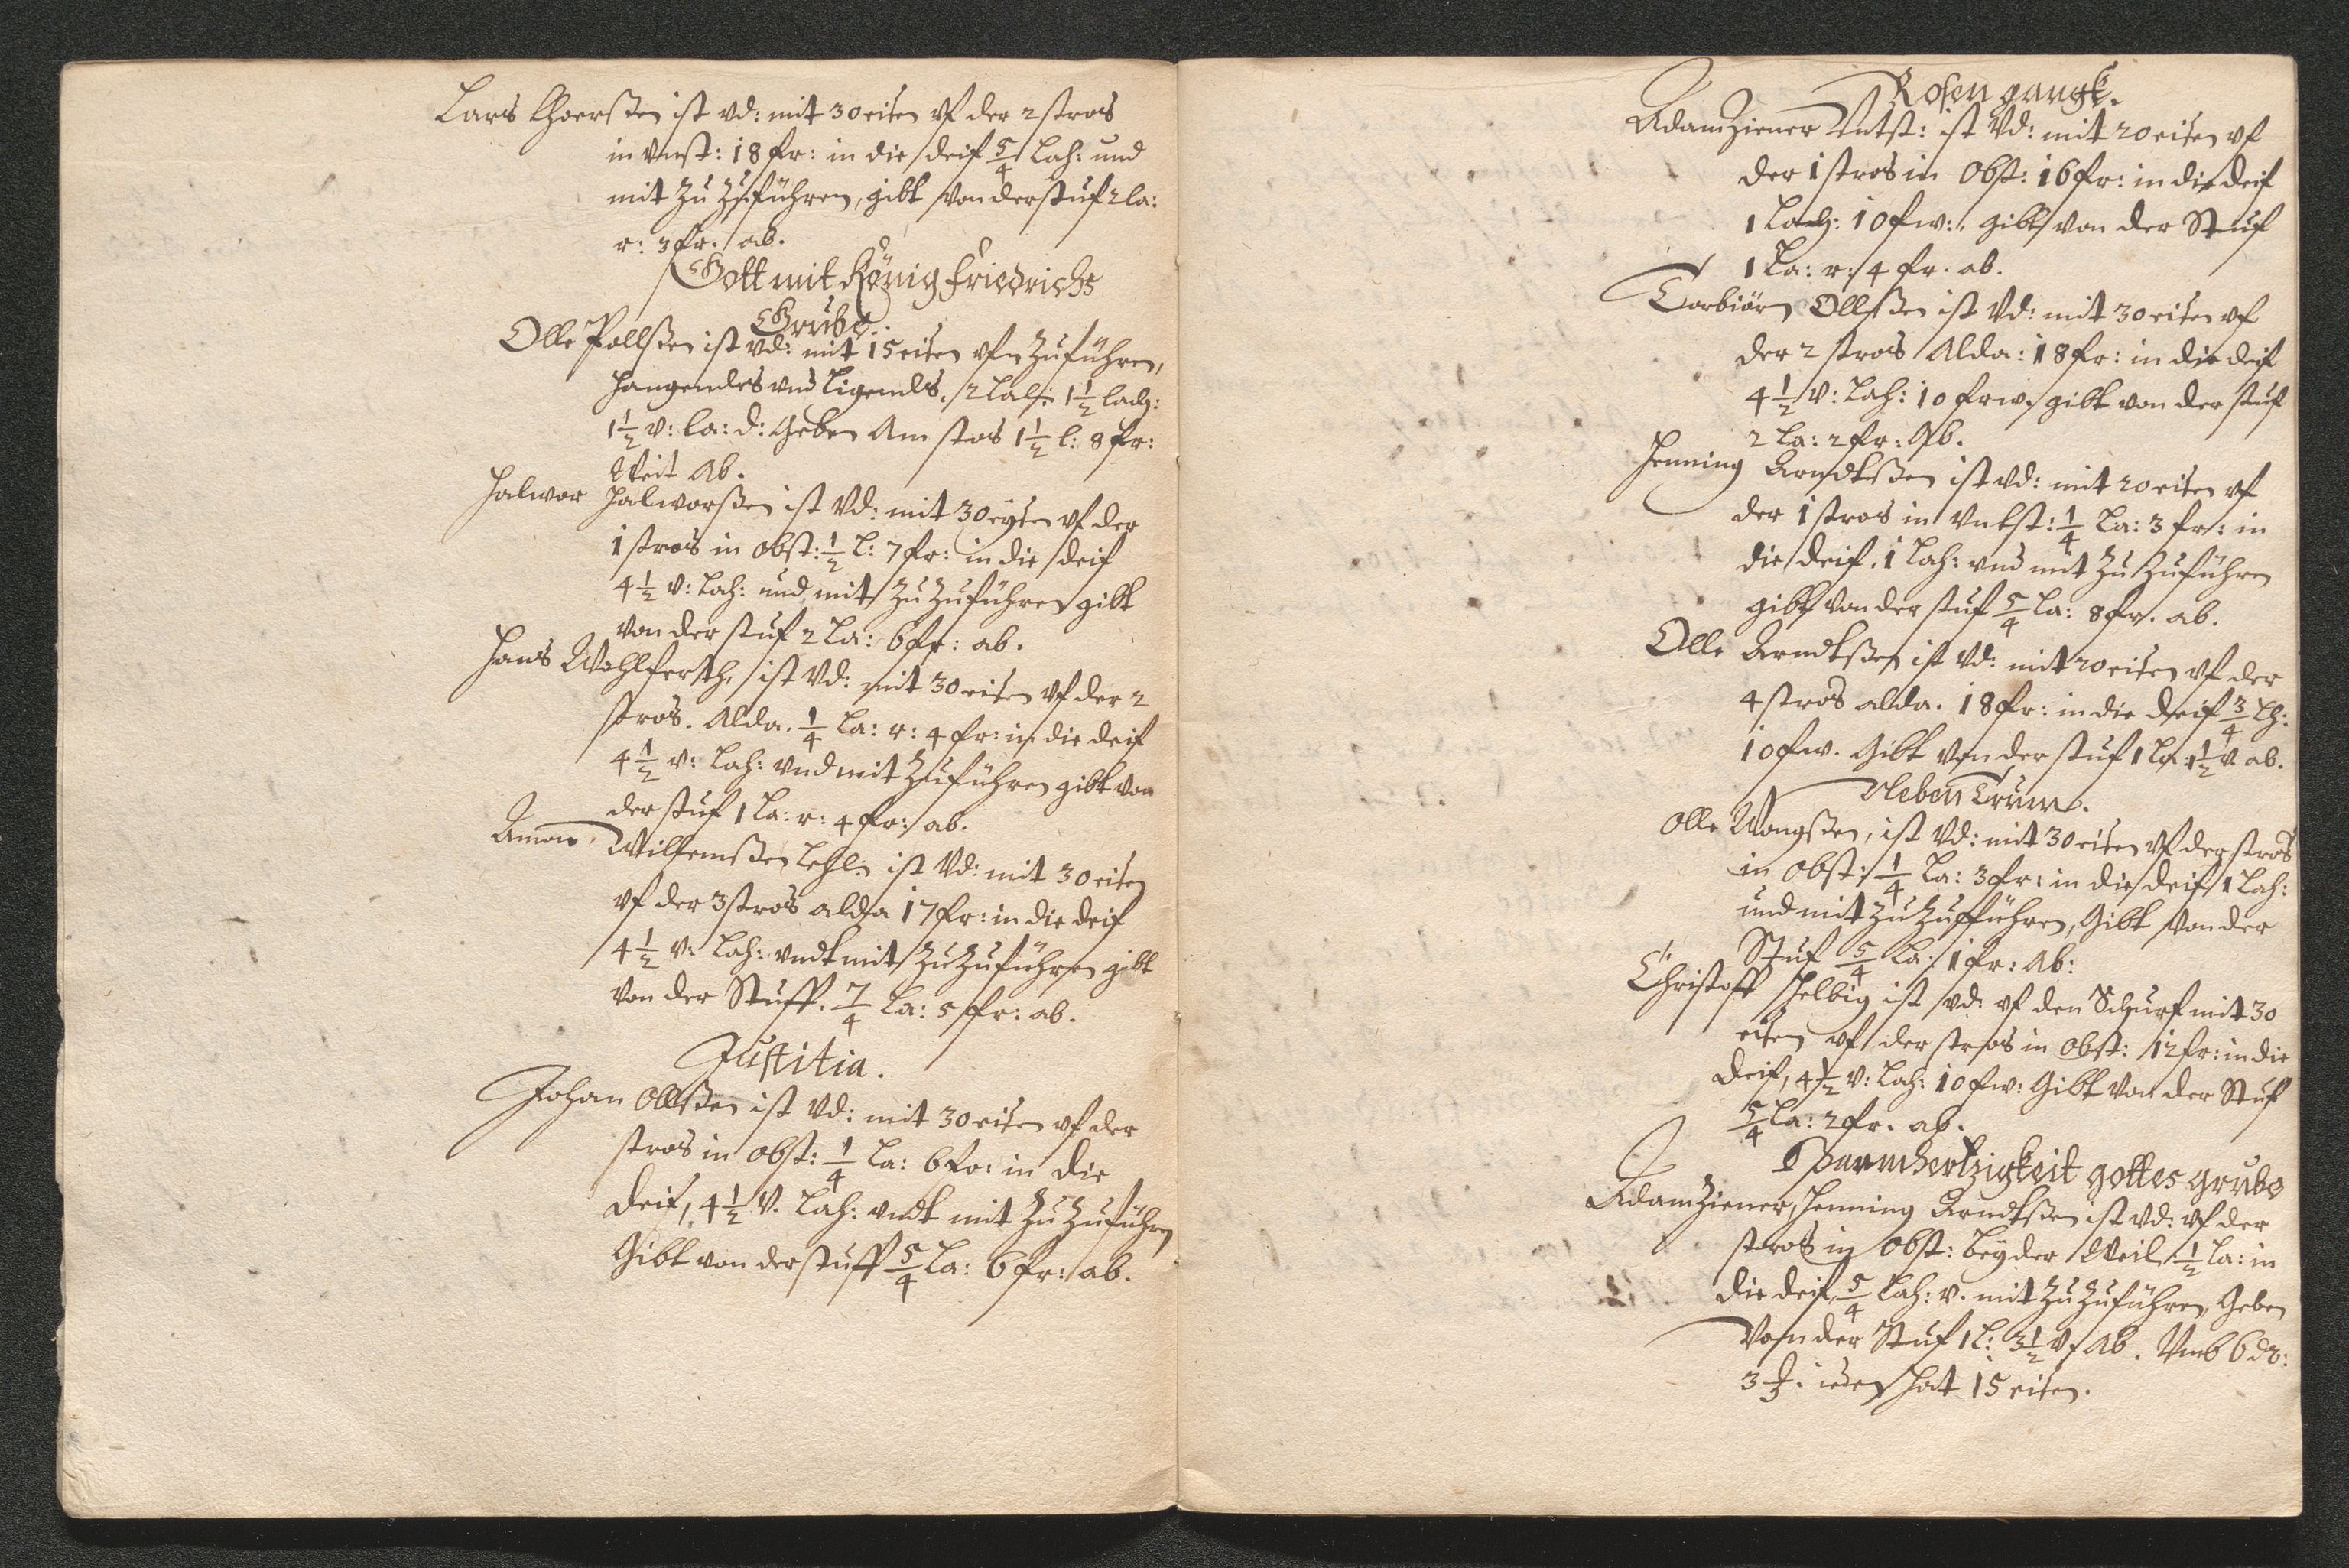 Lars Choerßen ist vd: mit 30 eisen vf der 2 stros
in vnst: 18 fr: in die deif 5/4 Lach: und
mit zu Zuführen, gibt von der stuf 2 la:
r: 3 fr: ab.
Gott mit König Friedrichs
Grube.
Olle Pollßen ist vd: mit 15 eisen vfn Zuführen,
hangendes vnd Ligends. 2 Lach 1 1/2 lach:
1 1/2 v: la: d: Geben Am stos 1 1/2 l: 8 fr:
Weit Ab.
Halwor Halworßen ist Vd: mit 30 eysen vf der
1 stros in obst: 1/2 l: 7 fr: in die deif
4 1/2 v: Lach: und mit Zu Zuführen gibt
von der stuf 2 La: 6 fr: ab.
Hans Wohlferth, ist Vd: mit 30 eisen vf der 2
stros. Alda. 1/4 La: r: 4 fr: in die deif
4 1/2 v: Lach: vnd mit Zuführen gibt von
der stuf 1 La: r: 4 fr: ab.
Amon Wilhemßen Lehl: ist Vd: mit 30 eisen
vf der 3 stros alda 17 fr: in die deif
4 1/2 v: Lach: vndt mit Zu Zuführen gibt
von der Stuff. 7/4 La: 5 fr: ab.
Justitia.
Johan Ollßen ist Vd: mit 30 eisen vf der
stros in obst: 1/4 La: 6 fr: in die
deif, 4 1/2 V. Lach: vndt mit Zu Zuführen
Gibt von der stuff 5/4 La: 6 fr: ab.
Rosen gangk.
Adam Ziener Vntst: ist Vd: mit 20 eisen vf
der 1 stros in Obst: 16 fr: in die deif
1 Lach: 10 fw: gibt von der Stuf
1 La: r: 4 fr. ab.
Torbiörn Ollßen ist Vd: mit 30 eisen vf
der 2 stros Alda: 18 fr: in die deif
4 1/2 V: Lach: 10 frw. gibt von der stuf
2 La: 2 fr: Ab.
Henning Arndtßen ist vd: mit 20 eisen vf
der 1 stros in Vntst: 1/4 La: 3 fr: in
die deif. 1 Lach: vnd mit Zu Zuführen
gibt von der stuf 5/4 La: 8 fr. ab.
Olle Arndtßen ist Vd: mit 20 eisen vf der
4 stros alda. 18 fr: in die deif 3/4 Lh:
10 fw. Gibt von der stuf 1 La: 1 1/2 v ab.
Neben Trum.
Olle Wongßen, ist Vd: mit 30 eisen vf der stros
in Obst: 1/4 La: 3 fr: in die deif 1 Lach:
und mit Zu Zuführen, Gibt von der
Stuf 5/4 La: 1 fr: Ab:
Christoff Helbig ist vd: vf den Schurf mit 30
eisen vf der stros in Obst: 12 fr: in die
deif, 4 1/2 V: Lach: 10 fw: Gibt Von der Stuf
5/4 La: 2 fr. ab.
Barmhertzigkeit gottes grube
Adam Ziener, Henning Arndtßen ist vd: vf der
stros in Obst: beyder Weil 1/2 La: in
die deif, 5/4 Lach: v. mit Zu Zuführen, Geben
Von der Stuf 1 L: 3 1/2 V Ab. Vmb 6 dr:
3 ieder hat 15 eisen.